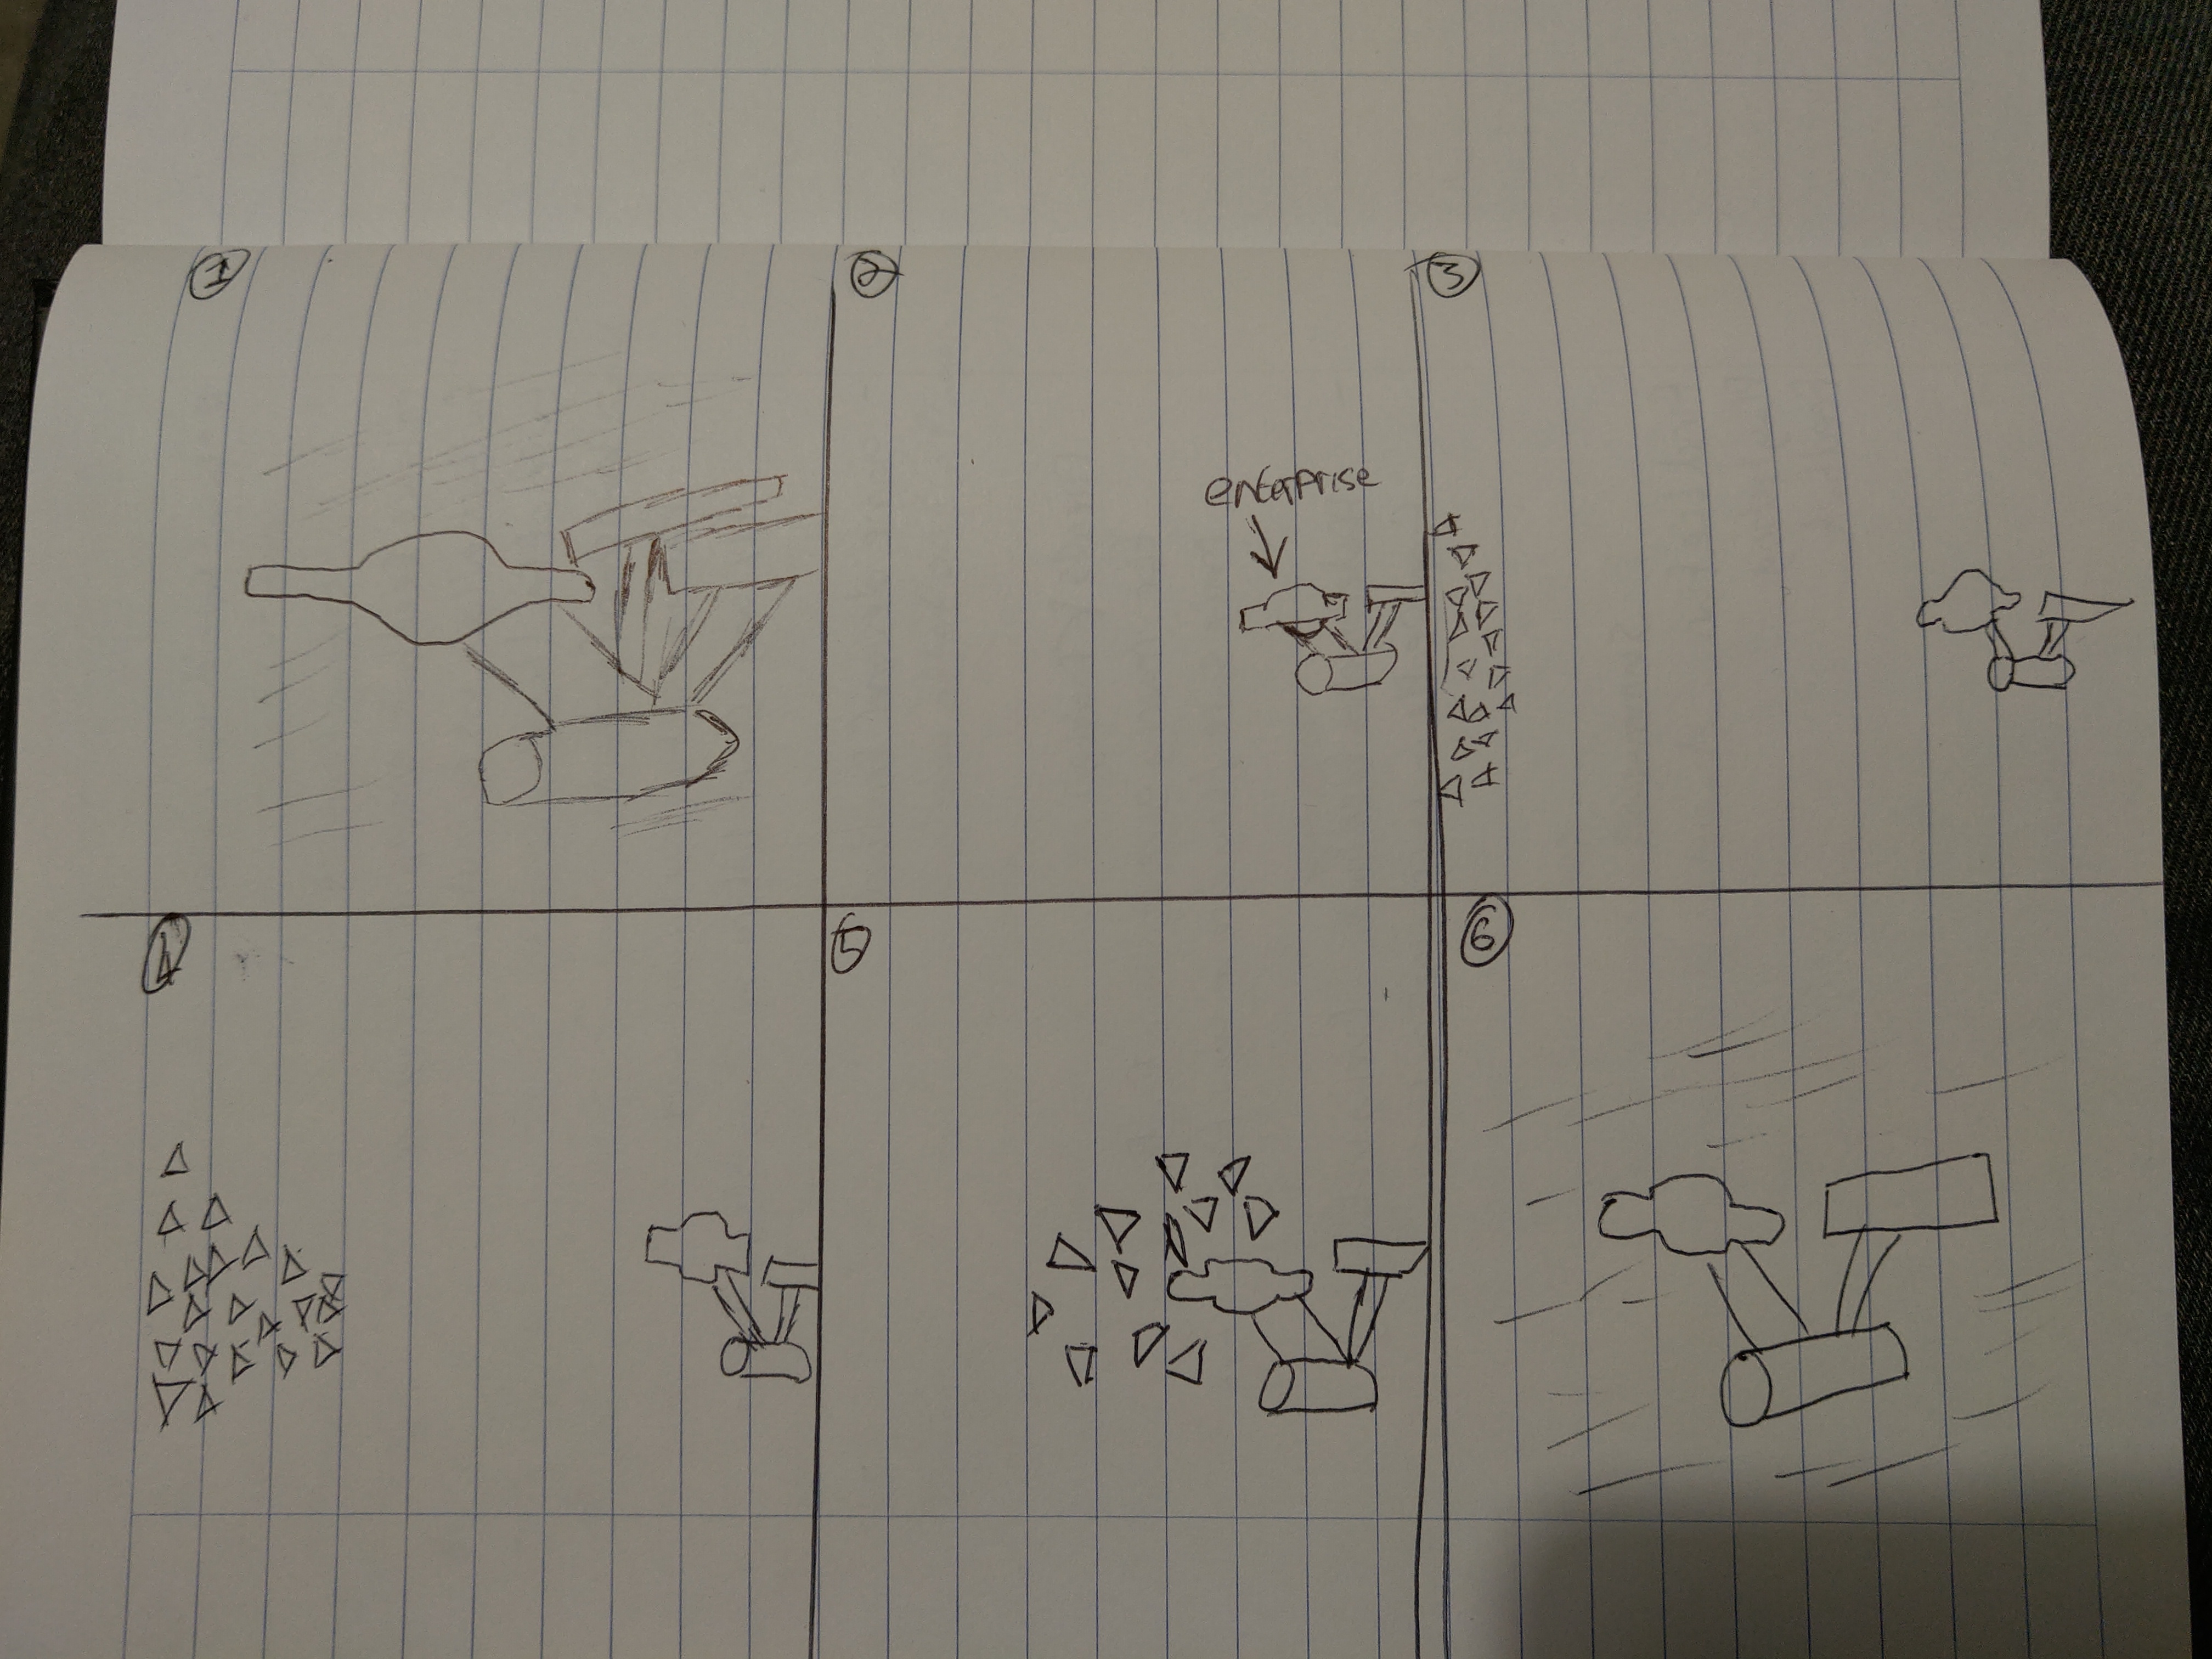 1
2
3
enterprise
4
5
6